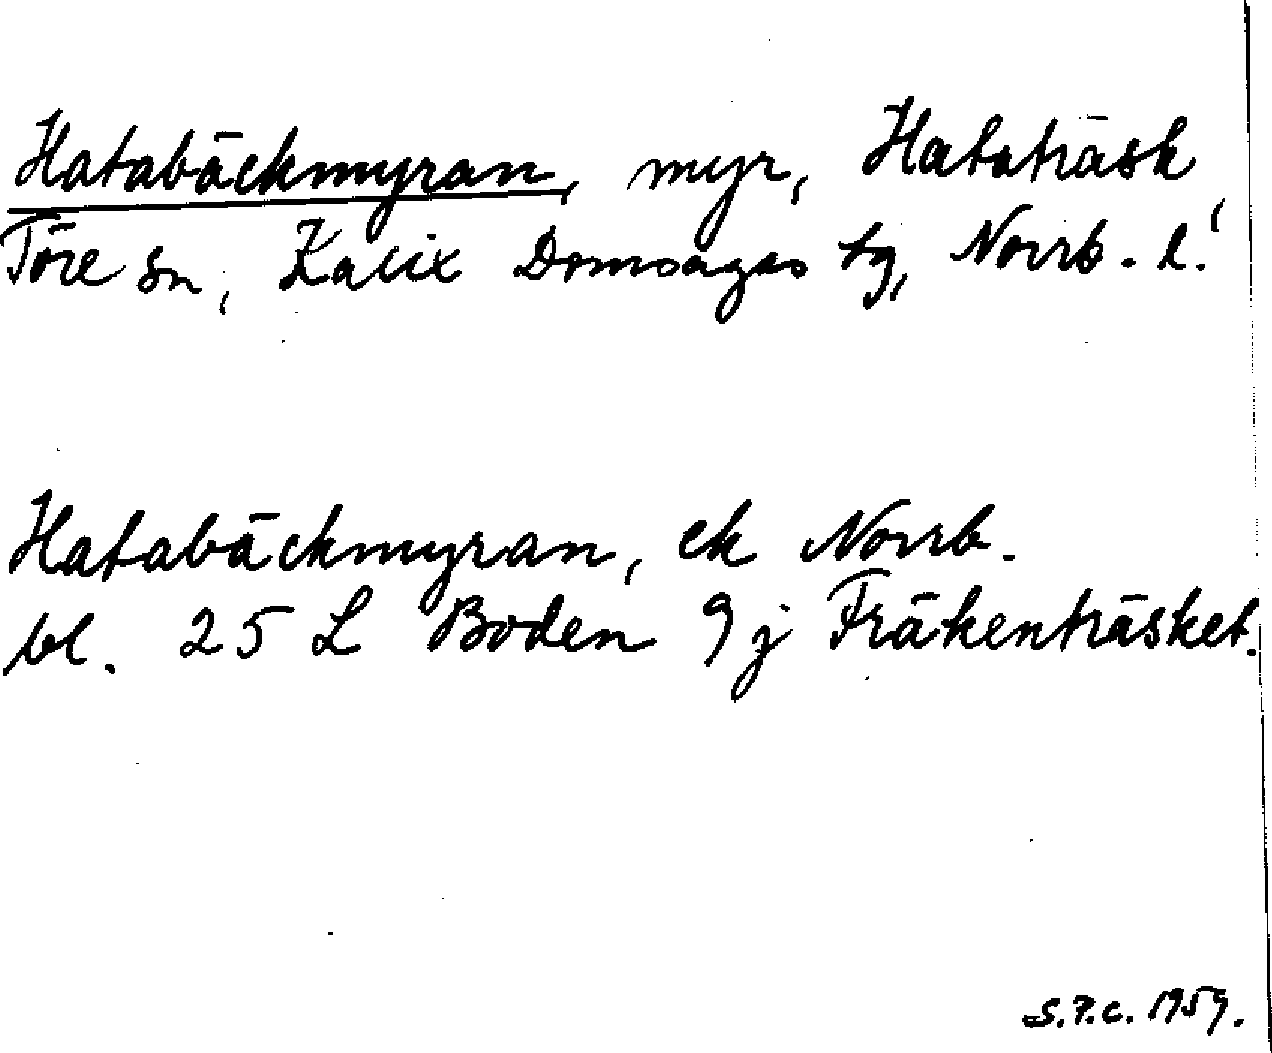 Hatabäckmyran, myr, Hataträsk,
Töre sn, Kalix Domsagas tg, Norrb. l.
Hatabäckmyran, ek Norrb.
bl. 25 L Boden 9 j Fräkenträsket.
S.P.C. 1959.